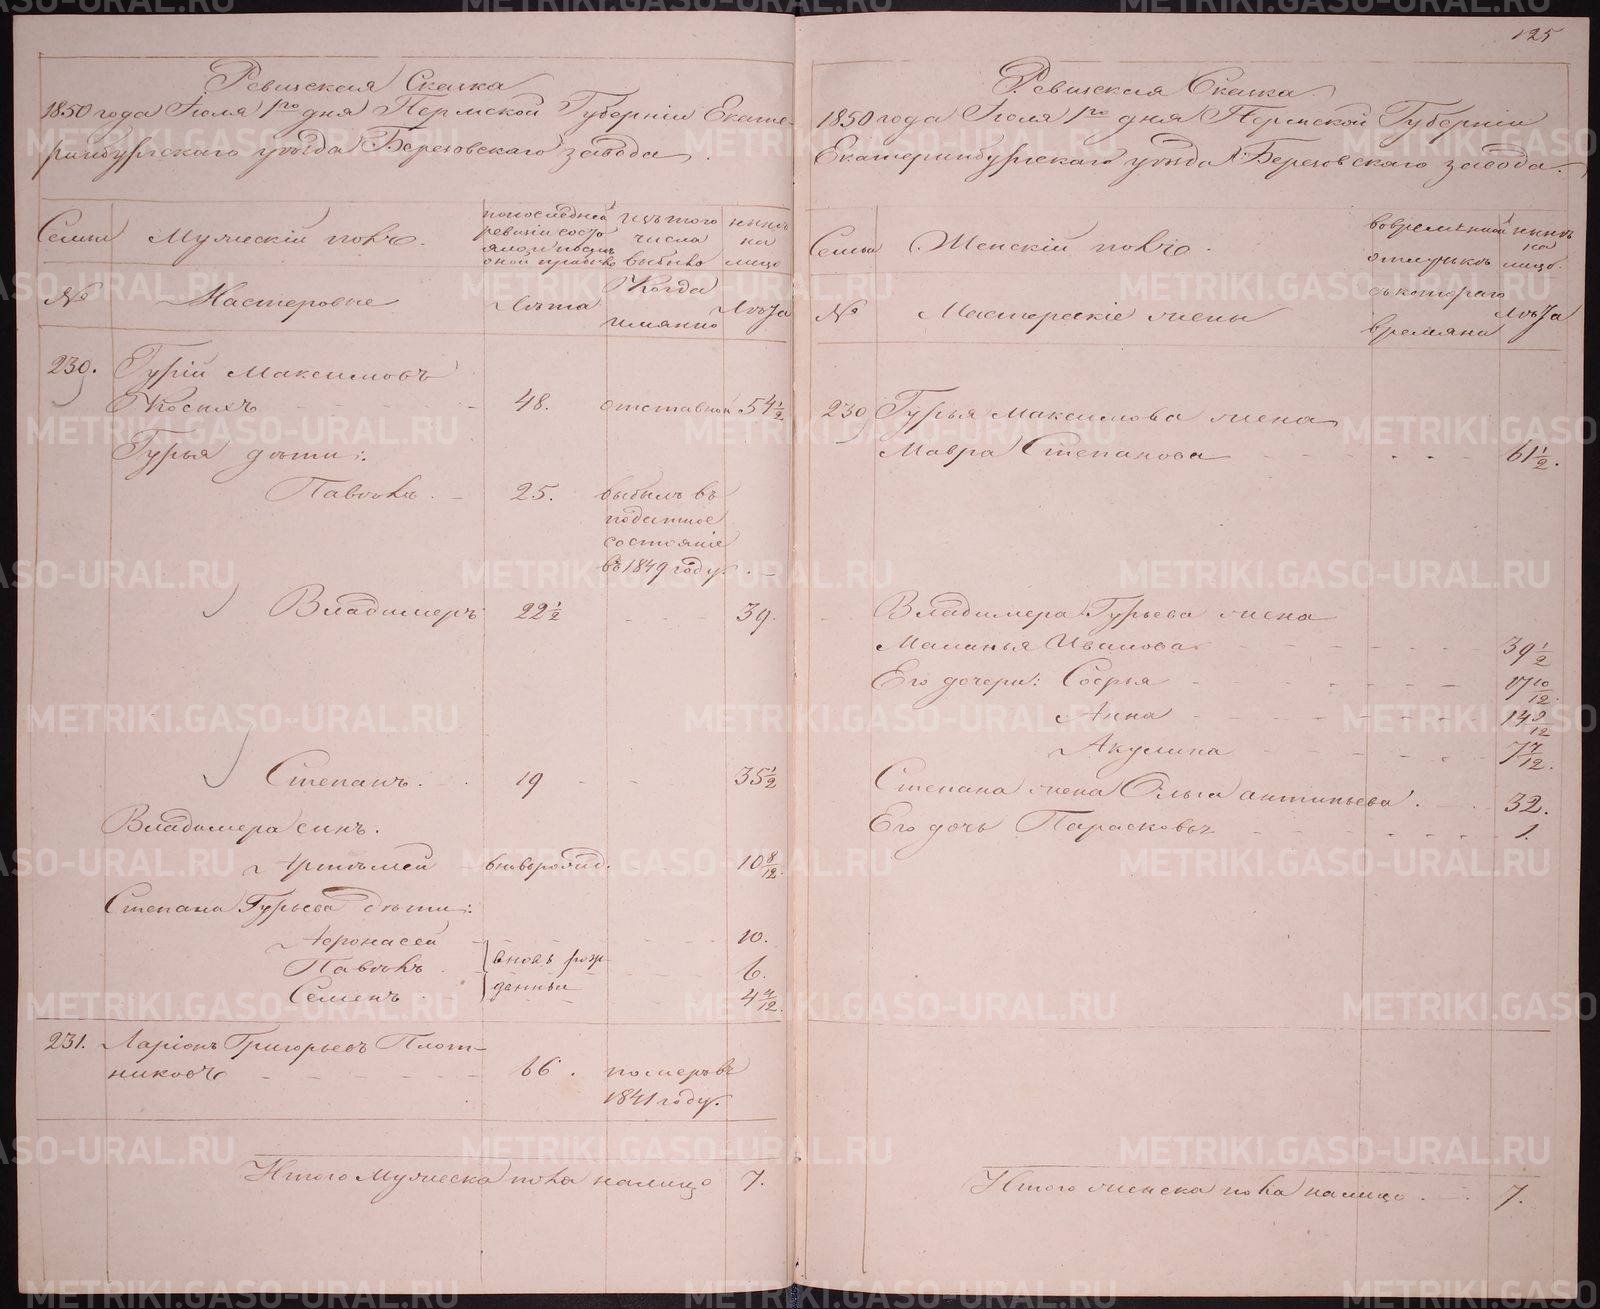 125
Ревизская Сказка
1850 года Іюля 1го дня Пермской Губерніи Екате-
ринбургскаго уѣзда Березовскаго завода.
Семьи
Мужескій полъ.
по последней
ревизіи состо
изъ того
числа
выбыло
нынѣ
на
лицо
№
Мастеровые
Лѣта
Когда
имянно
Лѣта
230. Гурій Максимовъ
Косыхъ - - - 48. отставной 54 1/2
Гурья дѣти:
Павелъ. - 25. выбылъ въ
податное
состояніе
въ 1849 году. -
Владимеръ 22 1/2 - - - 39.
Степанъ. - 19 - - 35 1/2
Владимера сынъ.
Артемей вновьрожд. 10 8/12
Степана Гурьева дѣти:
Афонасей 10.
Павелъ вновь рож- 6.
Семенъ данныи 4 4/12
231. Ларіонъ Григорьевъ Плот-
никовъ - - - 66. померъ въ
1841 году.
Итого Мужеска пола налицо 7.
Ревизская Сказка
1850 года Іюля 1го дня Пермской Губерніи
Екатеринбургскаго уѣзда Березовскаго завода.
Семьи
Женскій полъ.
во временной
отлучкѣ
нынѣ
на
лицо.
№
Мастерскіе жены
съ котораго
времяни
Лѣта
230 Гурья Максимова жена
Мавра Степанова - - - 61 1/2.
Владимера Гурьева жена
Маланья Иванова - - - 39 1/2
Его дочери: Софья - - - 17 10/12.
Анна - - - 14 9/12
Акулина - - - 7 7/12.
Степана жена Ольга антипьева. - 32.
Его дочь Парасковья - - - 1.
Итого женска пола налицо. - 7.
METRIKI.GASO-URAL.RU